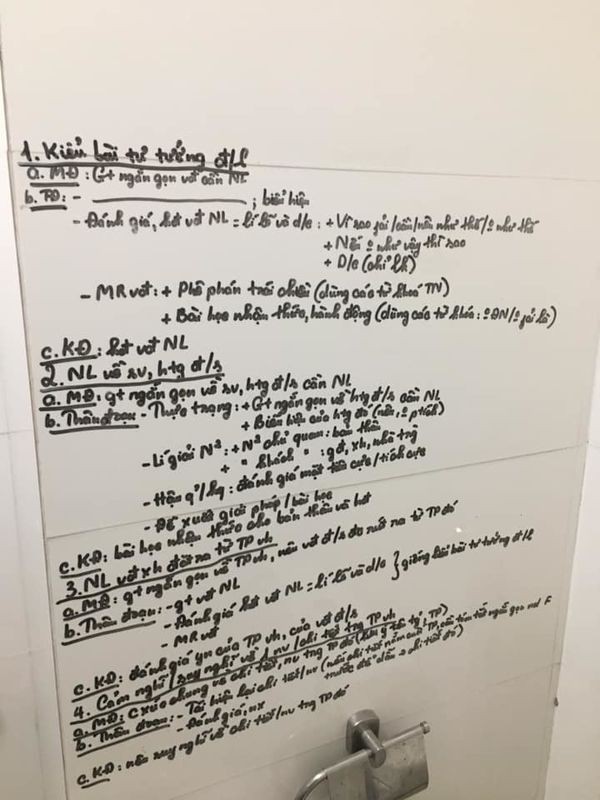 1. Kiểu bài tư tưởng đ/l
a. MĐ: G+ ngắn gọn vđ cần NL
b. TĐ: - ; biểu hiện
- Đánh giá, kết vđ NL = lí lẽ và d/c: + Vì sao fải/cần/nên như thế/o như thế
+ Nếu o như vậy thì sao
+ D/c (chỉ lk)
- MR vđ: + Phê phán trái chiều (dùng các từ khoá TN)
+ Bài học nhận thức, hành động (dùng các từ khóa: o ĐN/o fải là)
c. KĐ: kết vđ NL
2. NL về sv, htg đ/s
a. MĐ: g+ ngắn gọn về sv, htg đ/s cần NL
b. Thân đoạn - Thực trạng: + G+ ngắn gọn về htg đ/s cần NL
+ Biểu hiện của htg đó (nêu, o ptích)
- Lí giải N²: + N² chủ quan: bản thân
+ " khách " : gđ, xh, nhà trg
- Hậu q/kq: đánh giá mặt tiêu cực/tích cực
- Đề xuất giải pháp/bài học
c. KĐ: bài học nhận thức cho bản thân và kết
3. NL vđ xh đặt ra từ TP vh
a. MĐ: g+ ngắn gọn về TP vh, nêu vđ đ/s đc rút ra từ TP đó
b. Thân đoạn: - g+ vđ NL
- Đánh giá kết vđ NL = lí lẽ và d/c } giống kiểu bài tư tưởng đ/l
- MR vđ
c. KĐ: đánh giá yn của TP vh, của vđ đ/s
4. Cảm nghĩ/suy nghĩ về 1 nv/chi tiết trg TP vh
a. MĐ: C xúc chung về chi tiết, nv trg TP đó
b. Thân đoạn: - Tái hiện lại chi tiết/nv (nếu chi tiết nằm cuối TP, cần tóm tắt ngắn gọn nd F trước để dẫn chi tiết đó)
- Đánh giá, nx
c. KĐ: nêu suy nghĩ về chi tiết/nv trg TP đó